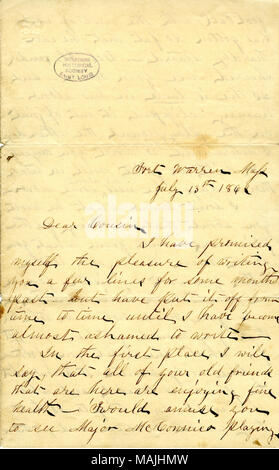 MISSOURI
HISTORICAL
SOCIETY
SAINT LOUIS
Fort Warren Mass
July 13th 186
Dear Cousin
I have promised
myself the pleasure of writing
you a few lines for some months
past but have put it off from
time to time until I have become
almost ashamed to write—
In the first place I will
say, that all of your old friends
that are here are enjoying fine
health— Twould amuse you
to see Major McConnico playing
alamy
Image ID: MAJHMW
www.alamy.com